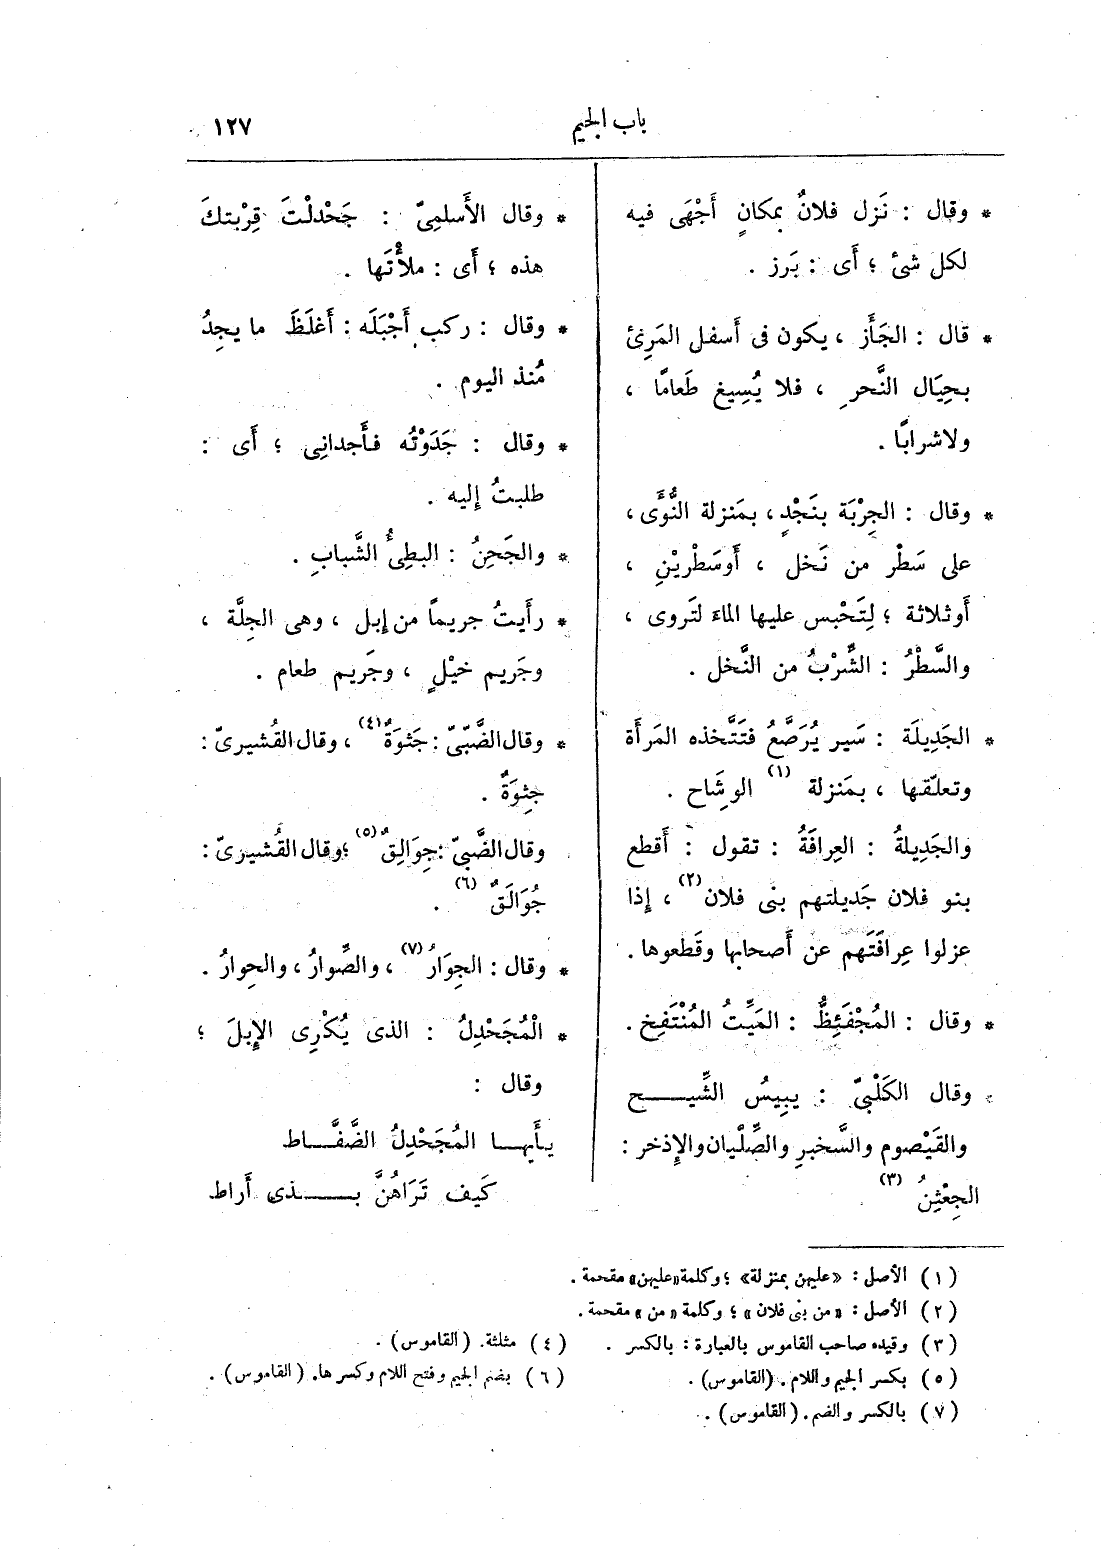 باب الجيم
١٢٧
* وقال : نَزل فلانٌ بمكانٍ أَجْهَى فيه
لكل شئ ؛ أى : بَرز .
* قال : الجَأَز ، يكون فى أسفل المَرِئ
بحِيَال النَّحرِ ، فلا يُسِيغ طَعامًا ،
ولاشرابًا .
* وقال : الجِرْبَة بنَجْدٍ ، بمَنزلة النُّؤَى ،
على سَطْر من نَخل ، أوسَطْريْنِ ،
أوثلاثة ؛ لِتَحْبس عليها الماءَ لتَروى ،
والسَّطْرُ : الشِّرْبُ من النَّخل .
* الجَدِيلَة : سَير يُرَصَّعُ فتَتَّخذه المَرأَة
وتعلّقها ، بمَنزلة (١) الوِشَاح .
والجَدِيلةُ : العِرافَةُ : تقول : أَقطع
بنو فلان جَديلتهم بنى فلان(٢) ، إِذا
عزلوا عِرافَتَهم عن أَصحابها وقَطعوها .
* وقال : المُجْفَئِظُّ : المَيِّتُ المُنْتَفِخ .
* وقال الكَلْبىّ : يبِيسُ الشِّيـــح
والقَيْصوم والسَّخبرِ والصِّلْيان والإِذخر :
الجِعْثِنُ (٣)
* وقال الأَسلمِىّ : جَحْدلْتَ قِرْبتكَ
هذه ؛ أَى : ملأْتَها .
* وقال : ركب أَجْبَلَه : أَغلَظَ ما يجِدُ
مُنذ اليوم .
* وقال : جَدَوْتُه فأَجدانِى ؛ أَى :
طلبتُ إِليه .
* والجَحِنُ : البطِئُ الشَّبابِ .
* رأَيتُ جريماً من إِبل ، وهى الجِلَّة ،
وجَريم خيْلٍ ، وجَريم طعام .
* وقال الضَّبّىّ : جَثوَةٌ(٤) ، وقال القُشيرىّ :
جِثوَةٌ .
وقال الضَّبىّ : جِوَالِقٌ(٥) ؛ وقال القُشيرىّ :
جُوَالَقٌ (٦) .
* وقال : الجِوَارُ(٧) ، والصِّوارُ ، والحِوارُ .
* الْمُجَحْدِلُ : الذى يُكْرِى الإِبلَ ؛
وقال :
يأَيهـا المُجَحْدِلُ الضَّفَّــاط
كَيف تَرَاهُنَّ بـــذى أَراط
(١) الأصل : «عليهن بمنزلة» ؛ وكلمة «عليهن» مقحمة .
(٢) الأصل : « من بنى فلان » ؛ وكلمة « من » مقحمة .
(٣) وقيده صاحب القاموس بالعبارة : بالكسر .
(٤) مثلثة. (القاموس) .
(٥) بكسر الجيم واللام . (القاموس) .
(٦) بضم الجيم وفتح اللام وكسرها. (القاموس) .
(٧) بالكسر والضم. (القاموس) .